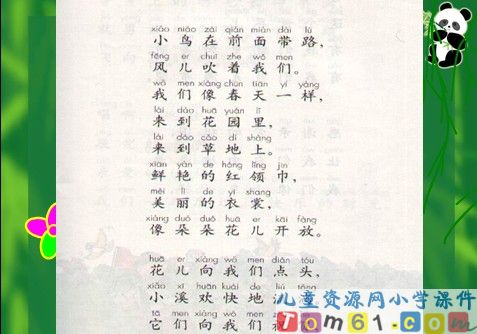 xiǎo niǎo zài qián miàn dài lù
小鸟在前面带路，
fēng er chuī zhe wǒ men
风儿吹着我们。
wǒ men xiàng chūn tiān yí yàng
我们像春天一样，
lái dào huā yuán lǐ
来到花园里，
lái dào cǎo dì shàng
来到草地上。
xiān yàn de hóng lǐng jīn
鲜艳的红领巾，
měi lì de yī shang
美丽的衣裳，
xiàng duǒ duǒ huā er kāi fàng
像朵朵花儿开放。
huā er xiàng wǒ men diǎn tóu
花儿向我们点头，
xiǎo xī huān kuài de
小溪欢快地
tā men xiàng wǒ men
它们向我们
儿童资源网小学课件
Tom61.com